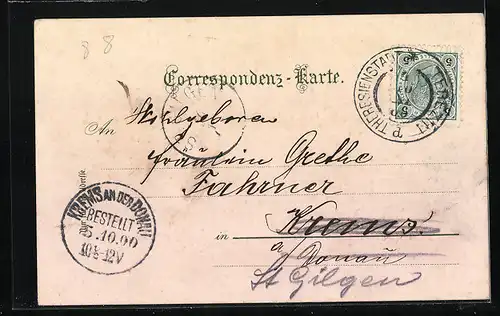 8 8
Correspondenz-Karte.
THERESIENSTADT
An Wohlgeboren
Fräulein Grethe
Fahrner
in Krems
a/Donau
St Gilgen
KREMS AN DER DONAU
BESTELLT
5.10.99
10½-12V